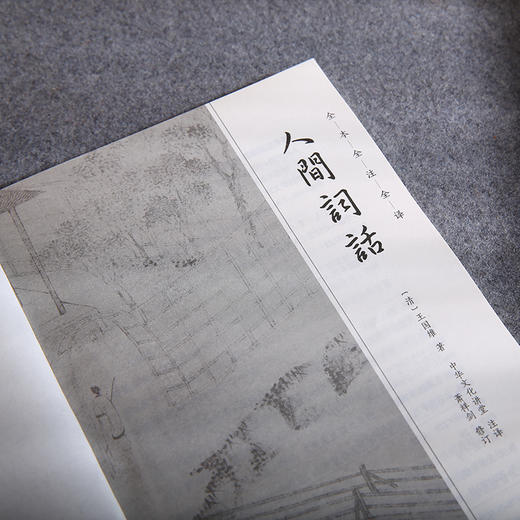 全本全注全译
人間詞話
〔清〕王国维 著
中华文化讲堂 注译
萧祥剑 修订